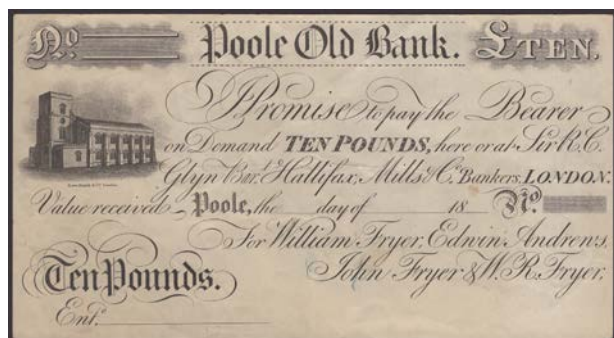 No Poole Old Bank. £TEN.
I Promise to pay the Bearer
on Demand TEN POUNDS, here or at Sir R.C.
Glyn Bart. Hallifax, Mills & Co. Bankers, LONDON.
Value received – Poole, the day of 18 No
For William Fryer, Edwin Andrews,
John Fryer & W. R. Fryer,
Ten Pounds.
Entd.